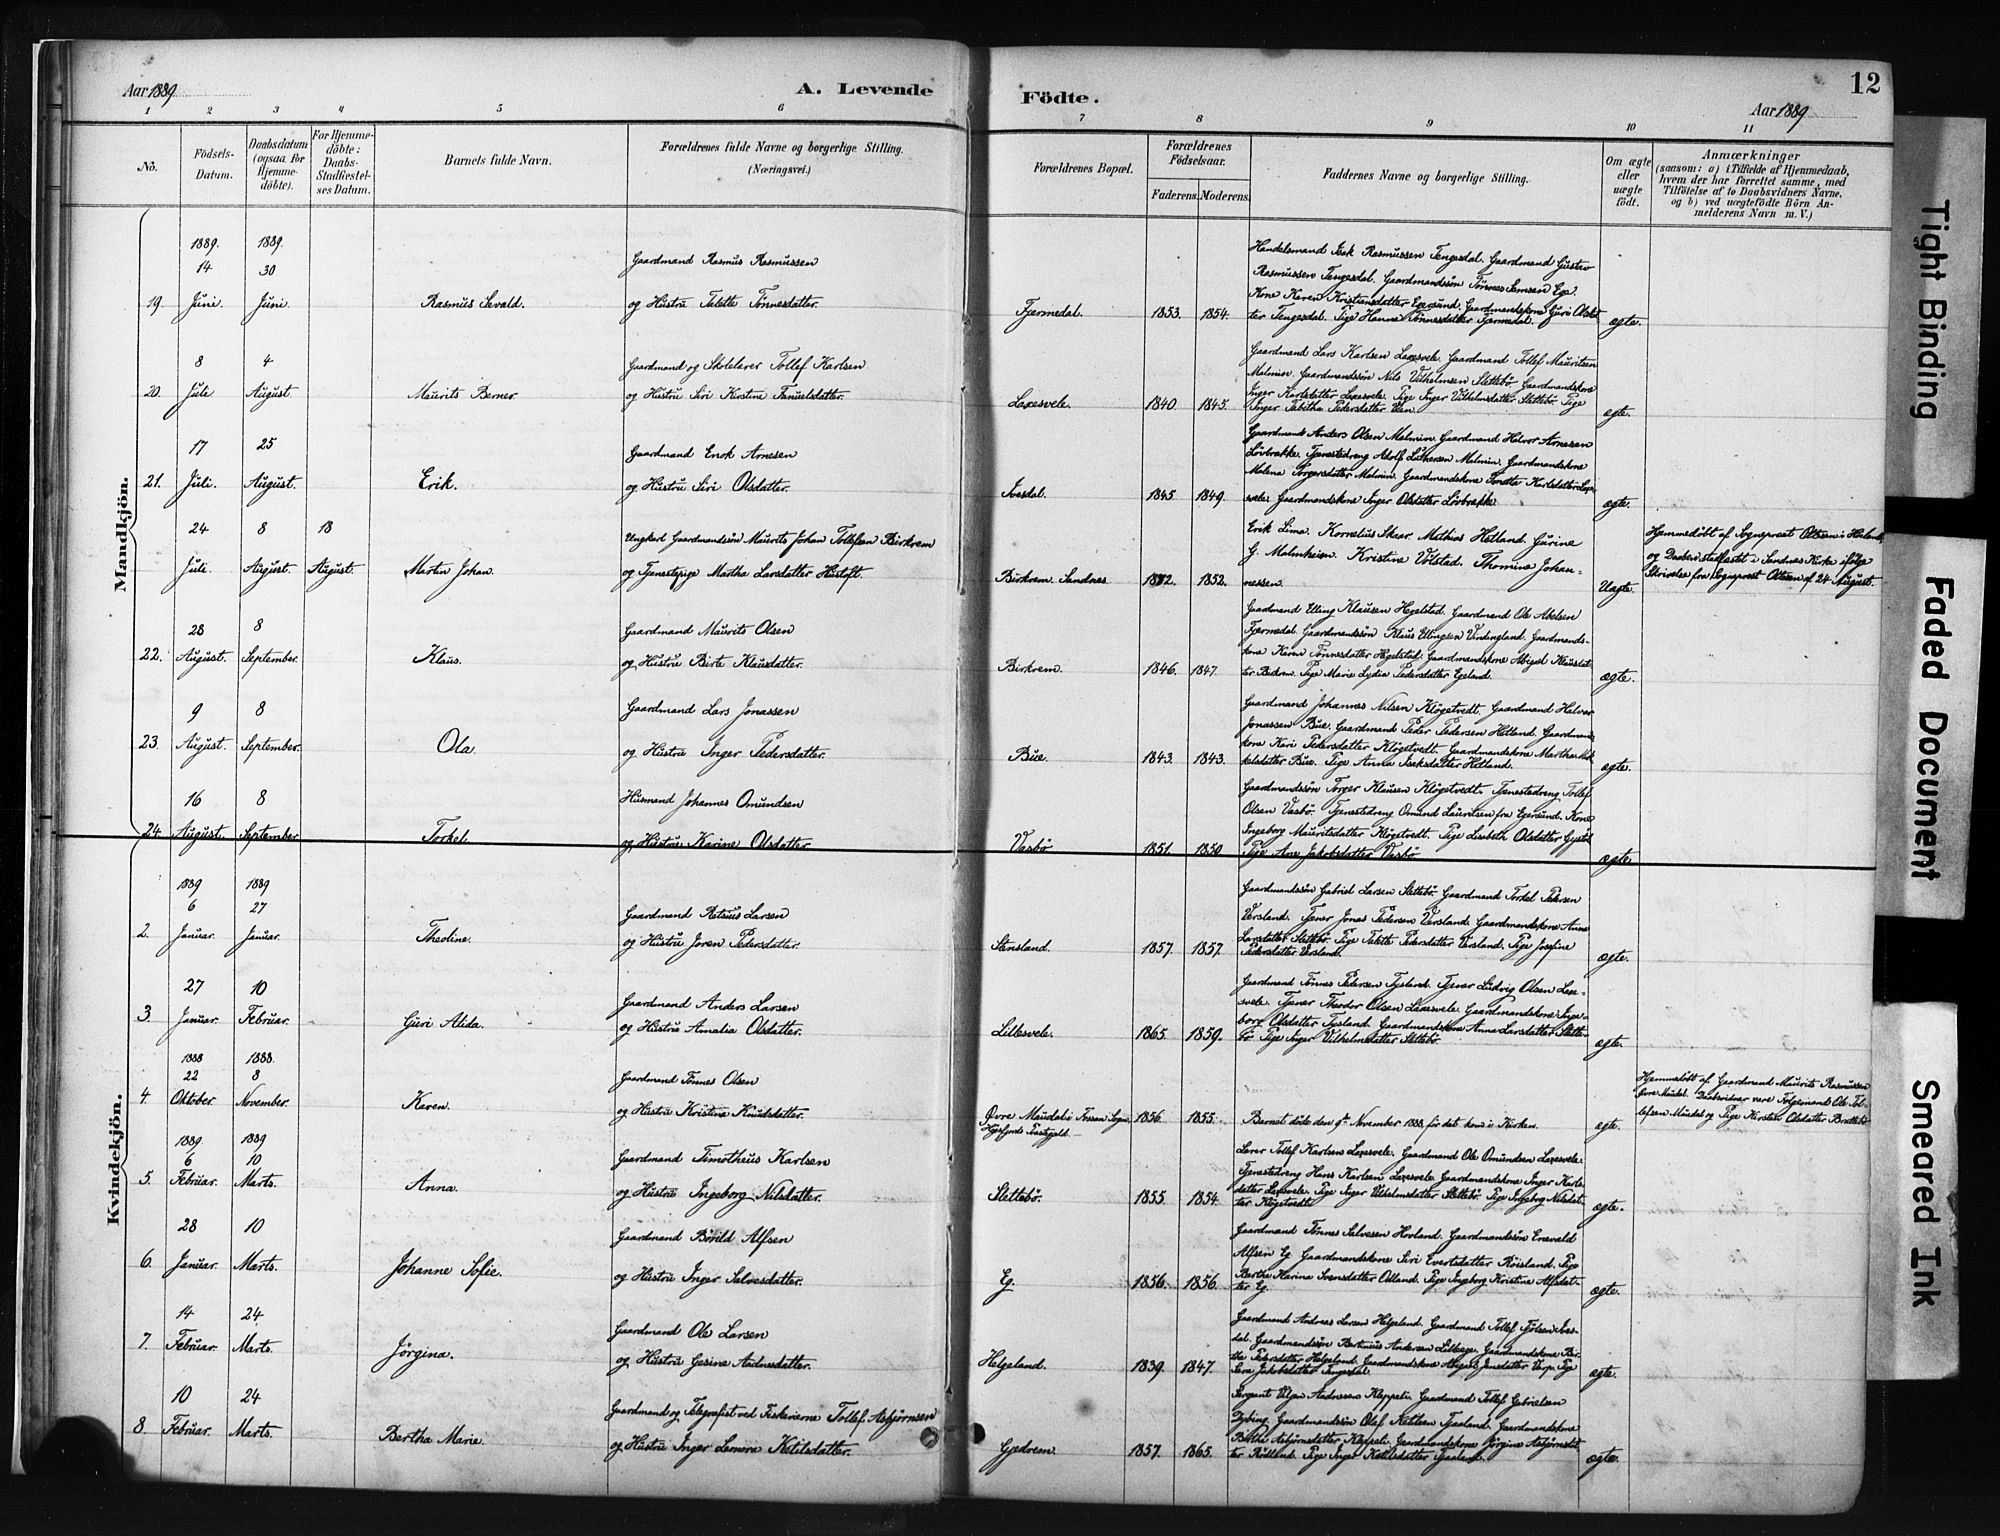 Aar 1889
A. Levende
Födte.
12
Aar 1889
1 2 3 4 5 6 7 8 9 10 11
No.
Födsels-
Datum.
Daabsdatum
(ogsaa for
Hjemme-
döbte).
For Hjemme-
döbte:
Daabs-
Stadfæstel-
ses Datum.
Barnets fulde Navn.
Forældrenes fulde Navne og borgerlige Stilling.
(Næringsvei.)
Forældrenes Bopæl.
Forældrenes
Födselsaar.
Faderens. Moderens.
Faddernes Navne og borgerlige Stilling.
Om ægte
eller
uægte
födt.
Anmærkninger
(saasom: a) i Tilfælde af Hjemmedaab,
hvem der har forrettet samme, med
Tilföielse af to Daabsvidners Navne.
og b) ved uægtefödte Börn An-
melderens Navn m. V.)
Mandkjön.
1889. 1889.
14 30
19. Juni. Juni. Rasmus Sevald.
Gaardmand Rasmus Rasmussen
og Hustru Talette Tönnesdatter.
Fjermedal. 1853. 1854.
Handelsmand Isak Rasmussen Tengesdal. Gaardmand Gustav
Rasmussen Tengesdal. Gaardmandssön Tönnes Samsen Ege.
Kone Karen Kristiansdatter Egersund. Gaardmandskone Guri Olsdat
ter Tengesdal. Pige Hanne Tönnesdatter Fjermedal.
ægte.
8 4
20. Jule August. Maurits Berner.
Gaardmand og Skolelærer Tollef Karlsen
og Hustru Siri Kirstine Tanielsdatter.
Laxesvele. 1840. 1845.
Gaardmand Lars Karlsen Laxesvele. Gaardmand Tollef Mauritsen
Malmien. Gaardmandssön Nils Vilhelmsen Slettebö. Gaardmandskone
Inger Karlsdatter Laxesvele. Pige Inger Vilhelmsdatter Slettebö. Pige
Inger Tabitha Pedersdatter
ægte.
17 25
21. Juli. August. Erik.
Gaardmand Enok Arnesen
og Hustru Siri Olsdatter.
Ivesdal. 1845 1849.
Gaardmand Anders Olsen Malmin. Gaardmand Halvor Arnesen
Lövbrække. Tjenestedreng Adolf Luthersen Malmin. Gaardmandskone
Malena Torgersdatter Malmin. Gaardmandskone Karlsdatter Laxe-
svele. Gaardmandskone Inger Olsdatter Lövbrække.
ægte.
24 8 18
Juli. August. August. Martin Johan.
Ungkarl Gaardmandssön Maurits Johan Tollefsen Birkrem
og Tjenestepige Martha Larsdatter Hustoft.
Birkrem. Sandnes 1852.
Erik Lima. Kornelius Skaar. Mathias Hetland. Gurine
G. Malmheien. Kristine Vølstad. Thomine Johan-
nessen.
Uægte.
Hjemmedøbt af Sognepræst Ottesen i Høiland,
og Daaben stadfæstet i Sandnes Kirke ifølge
Skrivelse fra Sognepræst Ottesen af 24 August.
28 8
22. August. September. Klaus.
Gaardmand Maurits Olsen
og Hustru Birte Klausdatter.
Birkrem. 1846. 1847.
Gaardmand Elling Klausen Hegelstad. Gaardmand Ole Abelsen
Fjermedal. Gaardmandssön Klaus Ellingsen Vindingland. Gaardmands-
kone Karen Tönnesdatter Hegelstad. Gaardmandskone Abigael Klausdat
ter Birkrem. Pige Marie Lydia Pedersdatter Egeland.
ægte.
9 8
23. August. September. Ola.
Gaardmand Lars Jonassen
og Hustru Inger Pedersdatter.
Bue. 1843. 1843.
Gaardmand Johannes Nilsen Klögetvedt. Gaardmand Halvor
Jonassen Bue. Gaardmand Peder Pedersen Hetland. Gaardmands
kone Kari Pedersdatter Klögetvedt. Gaardmandskone Martha Mik
kelsdatter Bue. Pige Anna Isaksdatter Hetland.
ægte.
16 8
24. August. September. Torkel.
Husmand Johannes Omundsen
og Hustru Karine Olsdatter.
Vasbö 1851. 1850
Gaardmandssön Torger Klausen Klögetvedt. Tjenestedreng Tollef
Olsen Vasbö. Tjenestedreng Omund Lauritsen fra Egersund. Kone
Ingeborg Mauritsdatter Klögetvedt. Pige Lisabeth Olsdatter
Pige Ane Jakobsdatter Vasbö
ægte.
Kvindekjön.
1889 1889
6 27
2. Januar. Januar. Theoline.
Gaardmand Rasmus Larsen
og Hustru Joren Pedersdatter.
Stensland. 1857. 1857.
Gaardmandssön Gabriel Larsen Slettebö. Gaardmand Torkel Pedersen
Versland. Tjener Jonas Pedersen Versland. Gaardmandskone Anna
Larsdatter Slettebö. Pige Talette Pedersdatter Versland. Pige Josefine
Pedersdatter Versland.
ægte.
27 10
3. Januar. Februar. Guri Alida.
Gaardmand Anders Larsen
og Hustru Amalia Olsdatter.
Lillesvele. 1865. 1859.
Gaardmand Tönnes Pedersen Tysland. Tjener Ludvig Olsen Laxe-
svele. Tjener Theodor Olsen Laxesvele. Gaardmandskone Inge-
borg Olsdatter Tysland. Gaardmandskone Anna Larsdatter Slette-
bö. Pige Inger Vilhelmsdatter Slettebö.
ægte.
1888 1888.
22 8
4. Oktober. November. Karen.
Gaardmand Tönnes Olsen
og Hustru Kristina Knudsdatter.
Övre Maudal i Sogn,
Præstegjeld. 1856. 1855.
Barnet döde den 9de November 1888, för det kom i Kirken.
ægte.
Hjemmedøbt af Gaardmand Maurits Rasmussen
Øvre Maudal. Daabsvidner vare Følgemand Ole Tol-
lefsen Maudal og Pige Kirsten Olsdatter
1889 1889
6 10
5. Februar. Marts. Anna.
Gaardmand Timotheus Karlsen
og Hustru Ingeborg Nilsdatter.
Slettebö. 1855 1854.
Lærer Tollef Karlsen Laxesvele. Gaardmand Ole Omundsen Laxesvele.
Tjenestedreng Hans Karlsen Laxesvele. Gaardmandskone Inger Karls-
datter Laxesvele. Pige Inger Vilhelmsdatter Slettebö. Pige Ingeborg Nilsdat-
ter Klögetvedt.
ægte.
28 10
6. Januar. Marts. Johanne Sofie.
Gaardmand Börild Alfsen
og Hustru Inger Salvesdatter.
Eg. 1856. 1856.
Gaardmand Tönnes Salvesen Hovland. Gaardmandssön Enevald
Alfsen Eg. Gaardmandskone Siri Evertsdatter Röisland. Pige
Berthe Karina Svensdatter Ödland. Pige Ingeborg Kristine Alfsdat-
ter Eg.
ægte.
14 24.
7. Februar. Marts. Jörgina.
Gaardmand Ole Larsen
og Hustru Gesine Aadnesdatter.
Helgeland. 1839. 1847.
Gaardmand Andreas Larsen Helgeland. Gaardmand Tollef Ives-
dal. Gaardmandssön Bertinius Andersen Gaardmandskone Ber-
tha Pedersdatter Helgeland. Gaardmandskone Abigael Jensdatter Pige
Sara Jakobsdatter Tengesdal.
ægte.
10 24
8. Februar. Marts. Bertha Marie.
Gaardmand og Telegrafist ved Fiskerierne Tollef Asbjørnsen
og Hustru Inger Lenora Ketilsdatter.
Gjedrem. 1857. 1865.
Sergeant Aadnesen Kleppeli. Gaardmand Tollef Gabrielsen
Dybing. Gaardmandssön Olaf Ketilsen Tjaaland. Gaardmandskone
Birthe Asbjørnsdatter Kleppeli. Gaardmandskone Jörgine Asbjørnsdat
ter Rödland. Pige Inger Ketilsdatter Tjaaland.
ægte.
Tight Binding
Faded Document
Smeared Ink